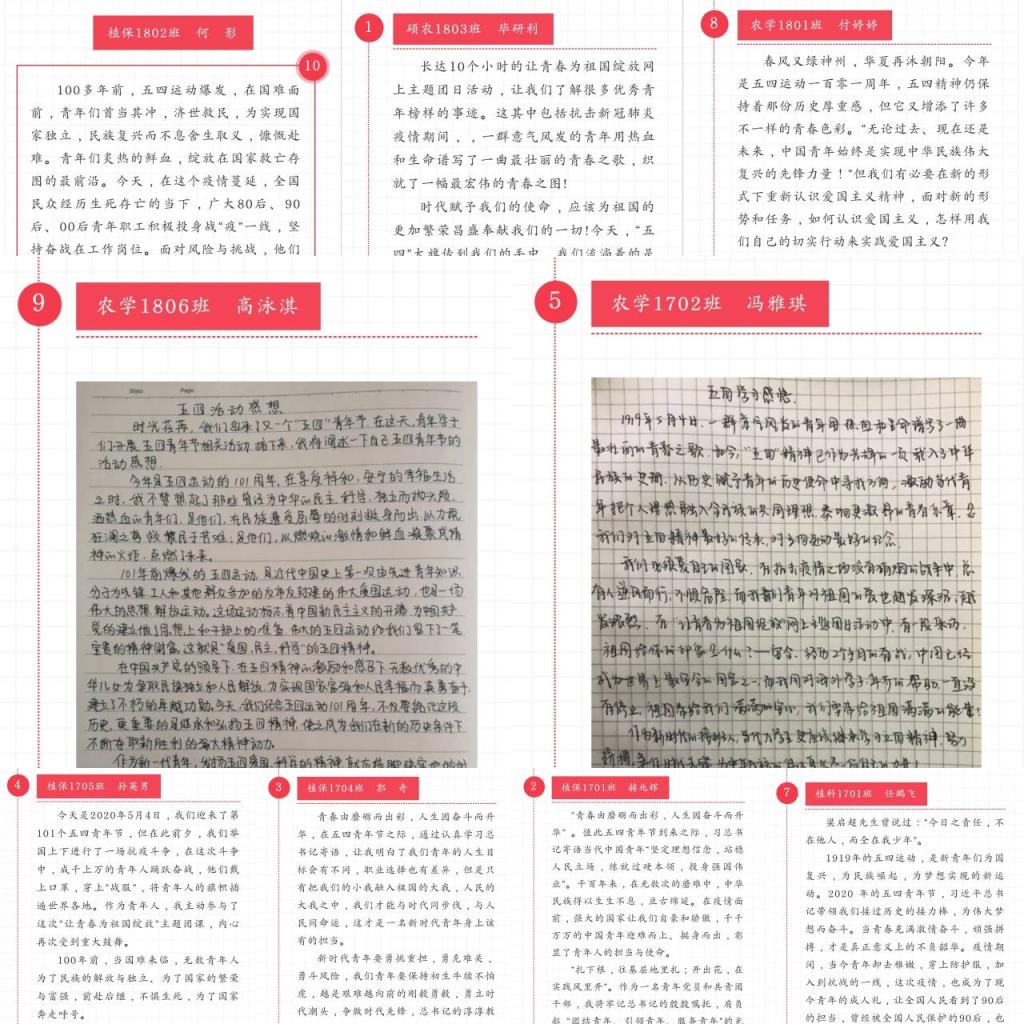 植保1802班 何 影
10
100多年前，五四运动爆发，在国难面
前，青年们首当其冲，济世救民，为实现国
家独立，民族复兴而不息舍生取义，慷慨赴
难。青年们炎热的鲜血，绽放在国家救亡存
图的最前沿。今天，在这个疫情蔓延，全国
民众经历生死存亡的当下，广大80后、90
后、00后青年职工积极投身战“疫”一线，坚
持奋战在工作岗位。面对风险与挑战，他们
1
硕农1803班 毕研利
长达10个小时的让青春为祖国绽放网
上主题团日活动，让我们了解很多优秀青
年榜样的事迹。这其中包括抗击新冠肺炎
疫情期间，，一群意气风发的青年用热血
和生命谱写了一曲最壮丽的青春之歌，织
就了一幅最宏伟的青春之图!
时代赋予我们的使命，应该为祖国的
更加繁荣昌盛奉献我们的一切!今天，“五
四”大旗传到我们的手中，我们流淌着的是
8
农学1801班 付婷婷
春风又绿神州，华夏再沐朝阳。今年
是五四运动一百零一周年，五四精神仍保
持着那份历史厚重感，但它又增添了许多
不一样的青春色彩。“无论过去、现在还是
未来，中国青年始终是实现中华民族伟大
复兴的先锋力量！”但我们有必要在新的形
式下重新认识爱国主义精神，面对新的形
势和任务，如何认识爱国主义，怎样用我
们自己的切实行动来实践爱国主义?
9
农学1806班 高泳淇
Date: Page:
五四活动感想
时光荏苒，我们迎来了又一个“五四”青年节，在这天，青年学子
们开展五四青年节相关活动，接下来，我将阐述一下自己五四青年节的
活动感想。
今年是五四运动的101周年，在享受祥和、安宁的幸福生活
之时，我不禁想起了那些曾经为中华的民主、科学、独立而抛头颅、
洒热血的青年们，是他们，在民族遭受屈辱的时刻挺身而出，以力挽
狂澜之势救黎民于苦难；是他们，以燃烧的激情和鲜血凝聚成精
神的火炬，点燃了未来。
101年前爆发的五四运动，是近代中国史上第一次由先进青年知识
分子为先锋，工人和其他群众参加的反帝反封建的伟大爱国运动，也是一场
伟大的思想解放运动。这场运动标志着中国新民主主义的开端，为中国共产
党的建立做了思想上和干部上的准备。伟大的五四运动给我们留下了一笔
宝贵的精神财富，这就是“爱国、民主、科学”的五四精神。
在中国共产党的领导下，在五四精神的激励和感召下，无数优秀的中
华儿女为争取民族独立和人民解放，为实现国家富强和人民幸福而英勇奋斗，
建立了不朽的卓越功勋。今天，我们纪念五四运动101周年，不仅要铭记这段
历史，更重要的是继承和弘扬五四精神，使之成为我们在新的历史条件下
不断夺取新胜利的强大精神动力。
作为新一代青年，
5
农学1702班 冯雅琪
五四学习感悟.
1919年5月4日，一群意气风发的青年用热血和生命谱写了一曲
最壮丽的青春之歌。如今，“五四”精神已作为光辉的一页载入了中华
民族的史册。从历史赋予青年的历史使命中寻找方向，激励当代青
年把个人理想融入全民族的共同理想，奏响更激昂的青春乐章，是
我们对五四精神最好的传承，对五四运动最好的纪念。
4
植保1705班 孙英男
今天是2020年5月4日，我们迎来了第
101个五四青年节，但在此前夕，我们举
国上下进行了一场抗疫斗争，在这次斗争
中，成千上万的青年人踊跃奋战，他们戴
上口罩，穿上“战服”，将青年人的旗帜插
遍世界各地。作为青年人，我主动参与了
这次“让青春为祖国绽放”主题团课，内心
再次受到重大鼓舞。
100年前，当国难来临，无数青年人
为了民族的解放与独立、为了国家的繁荣
与富强，前赴后继，不惧生死，为了国家
奔走呼号。
3
植保1704班 郭 奇
青春由磨砺而出彩，人生因奋斗而升
华，在五四青年节之际，通过认真学习总
书记寄语，让我明白了我们青年的人生目
标会有不同，职业选择也有差异，但是只
有把我们的小我融入祖国的大我，人民的
大我之中，我们才能与时代同步伐，与人
民同命运，这才是一名新时代青年身上该
有的担当。
新时代青年要勇挑重担，勇克难关，
勇斗风险，我们青年要保持初生牛犊不怕
虎，越是艰难越向前的刚毅勇毅，勇立时
代潮头，争做时代先锋，总书记的谆谆教
2
植保1701班 赫兆辉
“青春由磨砺而出彩，人生因奋斗而升
华”。值此五四青年节到来之际，习总书
记寄语当代中国青年“坚定理想信念，站稳
人民立场，练就过硬本领，投身强国伟
业”。千百年来，在无数次的磨难中，中华
民族得以生生不息，亘古绵延。在疫情面
前，强大的国家让我们自豪和骄傲，千千
万万的中国青年迎难而上、挺身而出，彰
显了青年人的担当与使命。
“扎下根，往基层地里扎；开出花，在
实践风里开”。作为一名青年党员和共青团
干部，我将牢记总书记的殷殷嘱托，肩负
起“团结青年、引领青年、服务青年”的光
7
植科1701班 任鹏飞
梁启超先生曾说过：“今日之责任，不
在他人，而全在我少年”。
1919年的五四运动，是新青年们为国
复兴，为民族崛起，为梦想实现的新运
动。2020 年的五四青年节，习近平总书
记带领我们接过历史的接力棒，为伟大梦
想而奋斗。当青春充满激情奋斗，顽强拼
搏，才是真正意义上的不负韶华。疫情期
间，当今青年却去稚嫩，穿上防护服，加
入到抗战的一线，这次疫情，也成为了现
今青年的成人礼，让全国人民看到了90后
的担当，曾经被全国人民保护的90后，也